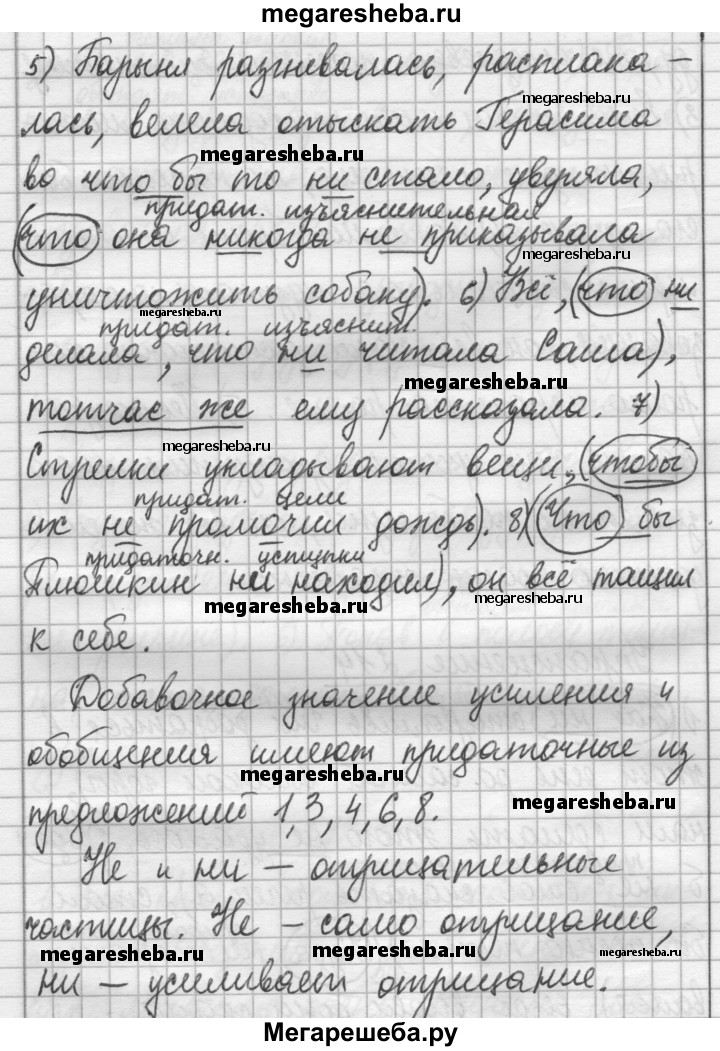 megaresheba.ru
5) Барыня разгневалась, расплака-
megaresheba.ru
лась, велела отыскать Герасима
megaresheba.ru
во что бы то ни стало, уверяла,
придат. изъяснительная
(что она никогда не приказывала
megaresheba.ru
уничтожить собаку). 6) Всё, (что ни
megaresheba.ru
придат. изъяснит.
делала, что ни читала Саша),
megaresheba.ru
тотчас же ему рассказала. 7)
megaresheba.ru
Стрелки укладывают вещи, (чтобы
придат. цели
их не промочил дождь). 8) (Что бы
придаточн. уступки
Плюшкин ни находил), он всё тащил
megaresheba.ru
megaresheba.ru
к себе.
Добавочное значение усиления и
обобщения имеют придаточные из
megaresheba.ru
предложений 1, 3, 4, 6, 8.
megaresheba.ru
Не и ни – отрицательные
частицы. Не – само отрицание,
megaresheba.ru
megaresheba.ru
megaresheba.ru
ни – усиливает отрицание.
Мегарешеба.ру